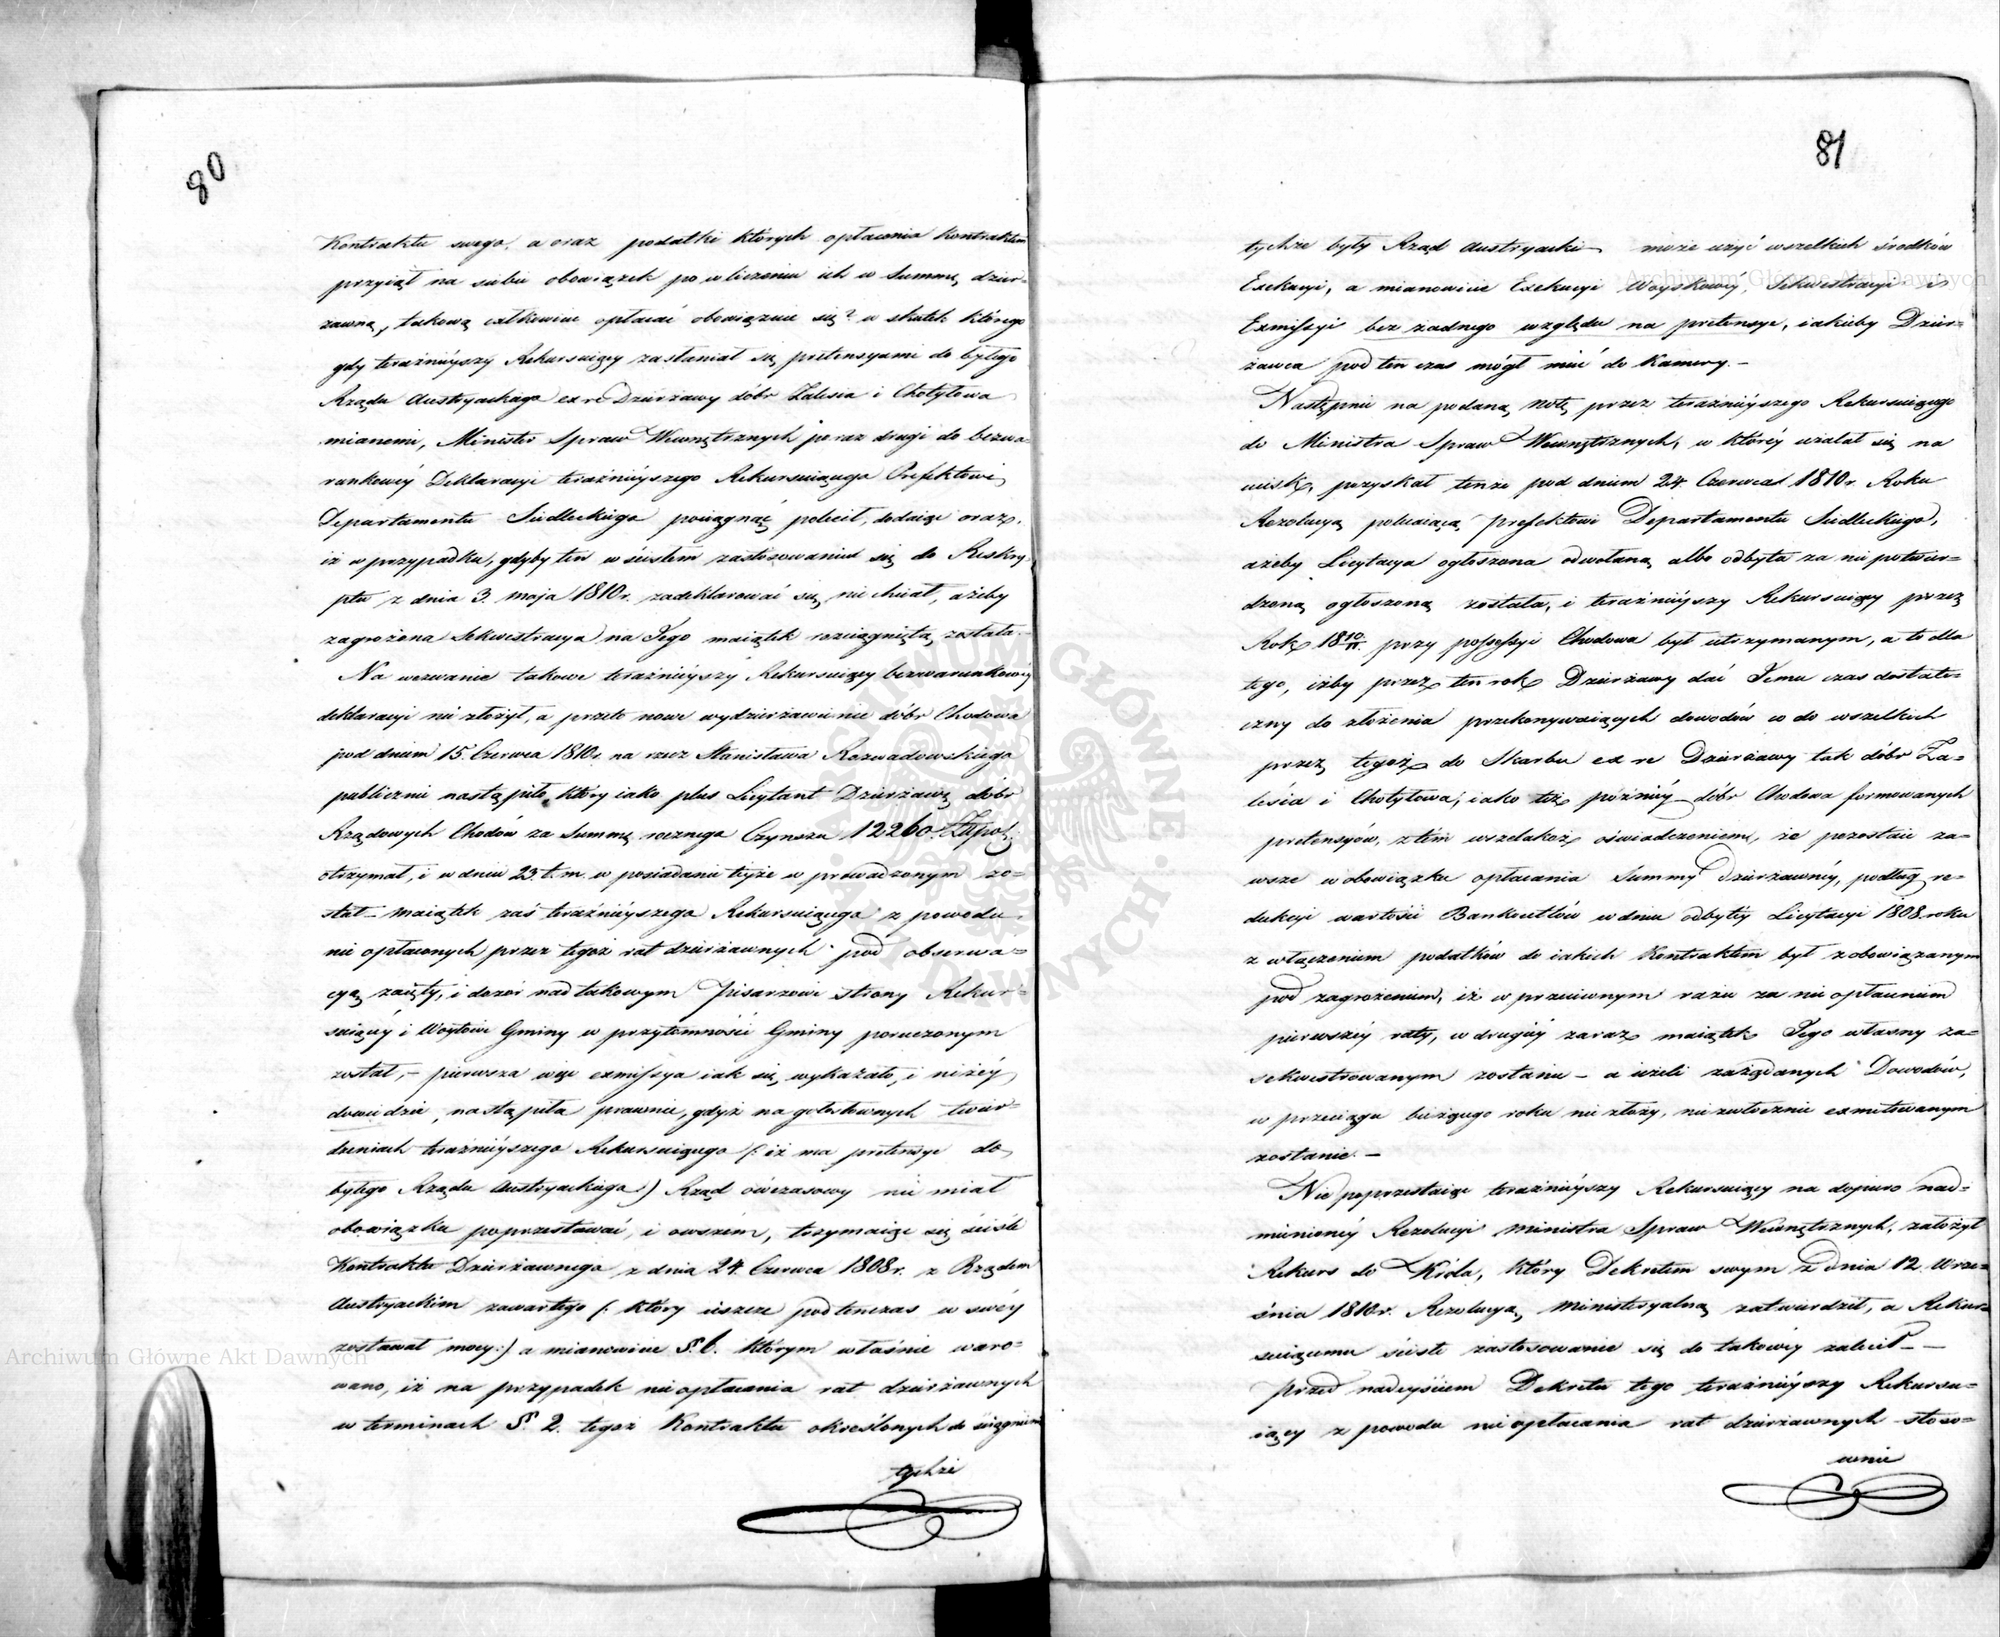 80
Kontraktu swego, a oraz podatki których opłacenia kontraktem
przyiął na siebie obowiązek po wliczeniu ich w Summę dzier-
żawną, takową całkowicie opłacać obowiązuie się? w skutek którego
gdy teraźnieyszy Rekursuiący zasłaniał się pretensyami do byłego
Rządu Austryackiego ex re Dzierżawy dóbr Zalesia i Chotyłowa
mianemi, Minister Spraw Wewnętrznych po raz drugi do bezwa-
runkowéy Deklaracyi teraźnieyszego Rekursuiącego Prefektowi
Departamentu Siedleckiego pociągnąć polecił, dodaiąc oraz,
iż w przypadku, gdyby ten w ścisłem zastosowaniu się do Reskry-
ptu z dnia 3. Maja 1810 r. zadeklarować się nie chciał, ażeby
zagrożona Sekwestracya na Jego maiątek rozciągniętą została.
Na wezwanie takowe teraźnieyszy Rekursuiący bezwarunkowéy
deklaracyi nie złożył, a przeto nowe wydzierżawienie dóbr Chodowa
pod dniem 15. Czerwca 1810 r. na rzecz Stanisława Rozwadowskiego
publicznie nastąpiło, który iako plus Licytant Dzierżawę dóbr
Rządowych Chodów za Summę rocznego Czynszu 12260. Złpol:
otrzymał, i w dniu 23. t. m. w posiadanie teyże wprowadzonym zo-
stał – maiątek zaś teraźnieyszego Rekursuiącego z powodu
nie opłaconych przez tegoż rat dzierżawnych pod obserwa-
cyą zaięty, i dozór nad takowym Pisarzowi strony Rekur-
suiącéy i Woytowi Gminy w przytomności Gminy poruczonym
został, – pierwsza więc exmissya iak się wykazało, i niżéy
dowiedzie, nastąpiła prawnie, gdyż na gołosłownych twier-
dzeniach teraźnieyszego Rekursuiącego (: iż ma pretensye do
byłego Rządu Austryackiego :) Rząd ówczasowy nie miał
obowiązku poprzestawać, i owszem, trzymaiąc się ściśle
Kontraktu Dzierżawnego z dnia 24. Czerwca 1808 r. z Rządem
Austryackim zawartego (: który ieszcze podtenczas w swéy
zostawał mocy :) a mianowicie §. 6. którym właśnie waro-
wano, iż na przypadek nieopłacania rat dzierżawnych
w terminach §. 2. tegoż Kontraktu określonych do ściągnienia
tychże
81
tychże były Rząd Austryacki może użyć wszelkich środków
Exekucyi, a mianowicie Exekucyi Woyskowéy, Sekwestracyi i
Exmissyi bez żadnego względu na pretensye, iakieby Dzier-
żawca podtenczas mógł mieć do Kamery. –
Następnie na podaną Notę przez teraźnieyszego Rekursuiącego
do Ministra Spraw Wewnętrznych, w któréy użalał się na
ucisk, pozyskał tenże pod dniem 24. Czerwca 1810 r. Roku
Rezolucyą polecaiącą Prefektowi Departamentu Siedleckiego,
ażeby Licytacya ogłoszona odwołaną albo odbyta za niepotwier-
dzoną ogłoszoną została, i teraźnieyszy Rekursuiący przez
Rok 18 10/11. przy possessyi Chodowa był utrzymanym, a to dla
tego, iżby przez ten rok Dzierżawy dać Jemu czas dostate-
czny do złożenia przekonywaiących dowodów co do wszelkich
przez tegoż do Skarbu ex re Dzierżawy tak dóbr Za-
lesia i Chotyłowa, iako też późniéy dóbr Chodowa formowanych
pretensyów, z tém wszelakoż oświadczeniem, że pozostaie za-
wsze w obowiązku opłacania Summy dzierżawnéy, podług re-
dukcyi wartości Bankocetlów w dniu odbytéy Licytacyi 1808 roku
z włączeniem podatków do iakich Kontraktem był zobowiązanym
pod zagrożeniem, iż w przeciwnym razie za nieopłaceniem
pierwszéy raty, w drugiéy zaraz maiątek Jego własny za-
sekwestrowanym zostanie – a ieżeli zażądanych Dowodów,
w przeciągu bieżącego roku nie złoży, niezwłocznie exmitowanym
zostanie. –
Nie poprzestaiąc teraźnieyszy Rekursuiący na dopiero nad-
mienionéy Rezolucyi Ministra Spraw Wewnętrznych, założył
Rekurs do Króla, który Dekretem swym z dnia 12. Wrze-
śnia 1810 r. Rezolucyą Ministeryalną zatwierdził, a Rekur-
suiącemu ściśle zastosowanie się do takowéy zalecił –
Przed nadeyściem Dekretu tego teraźnieyszy Rekursu-
iący z powodu nieopłacania rat dzierżawnych stoso-
wnie
Archiwum Główne Akt Dawnych
Archiwum Główne Akt Dawnych
ARCHIWUM GŁÓWNE AKT DAWNYCH